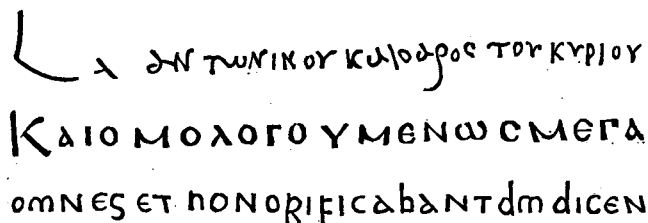 L α αντωνινου καισαρος του κυριου
ΚΑΙΟΜΟΛΟΓΟΥΜΕΝωϹΜΕΓΑ
omnes et honorificabant dm dicen